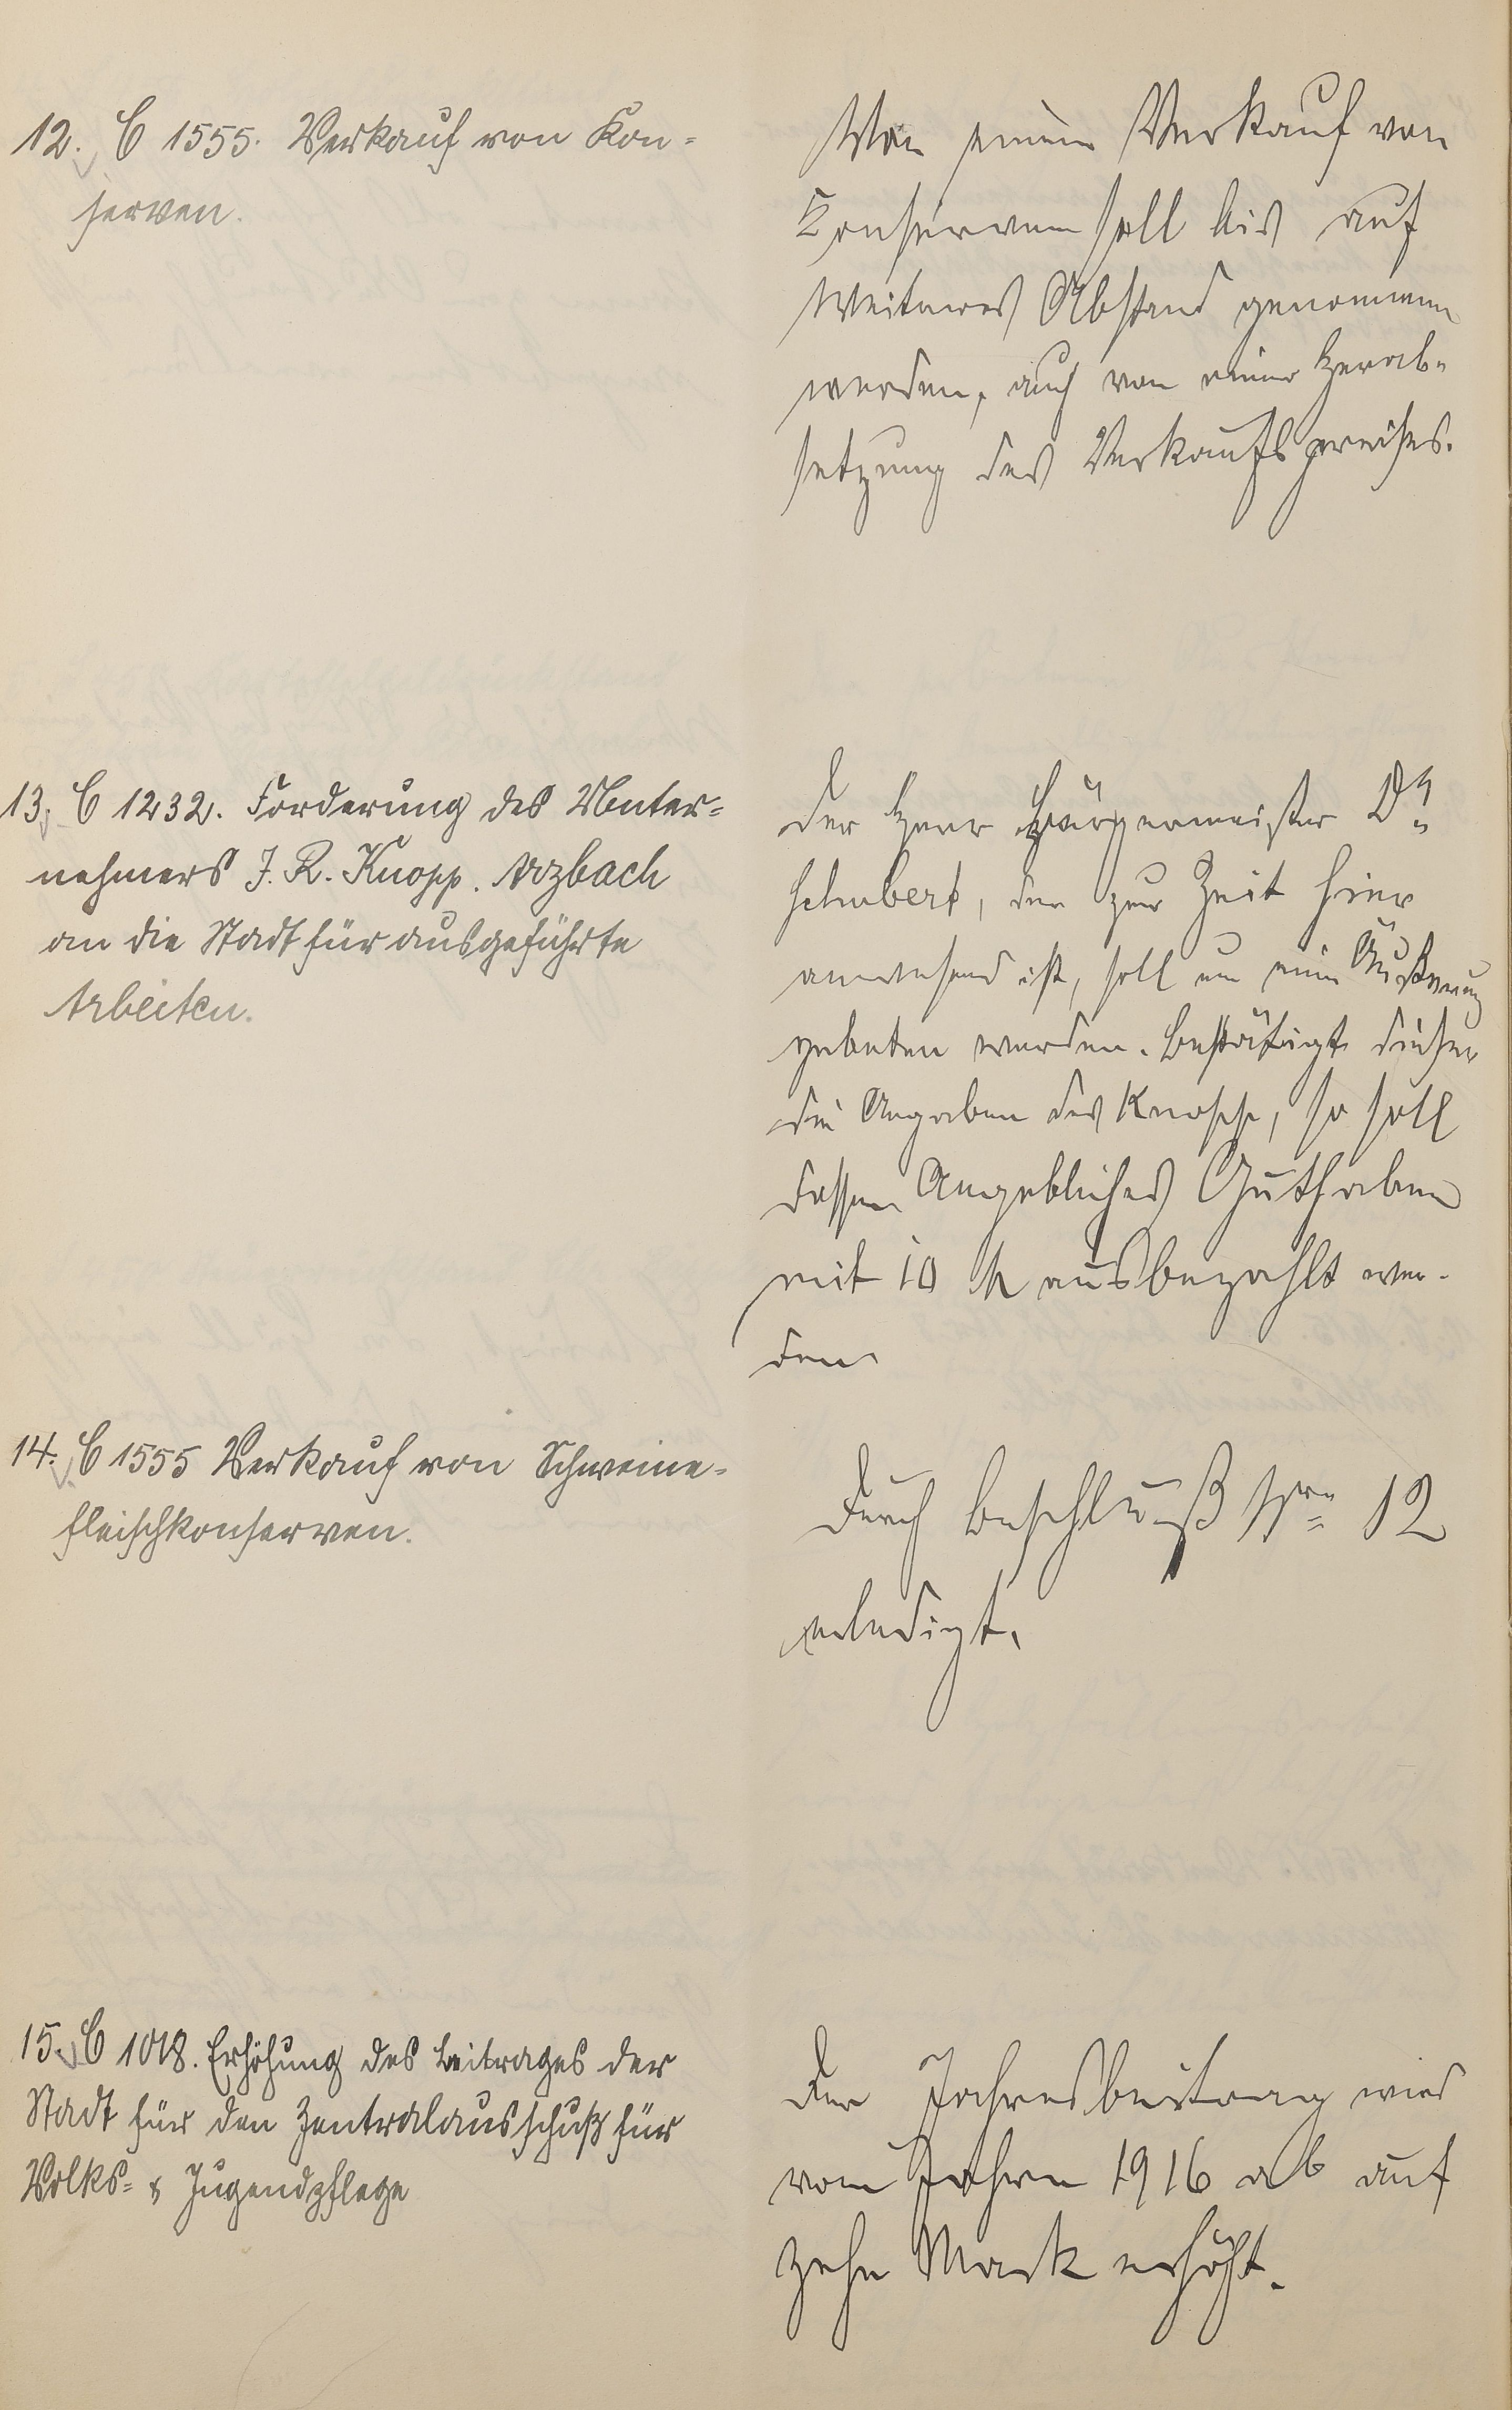 12. C 1555. Verkauf von Kon=
serven.
Von einem Verkauf von
Konserven soll bis auf
Weiteres Abstand genommen
werden, auch von einer Herab-
setzung des Verkaufspreises.
13. C 1232. Forderung des Unter=
nehmers J. R. Knopp. Arzbach
an die Stadt für ausgeführte
Arbeiten.
Der Herr Bürgermeister Dr.
Schubert, der zur Zeit hier
anwesend ist, soll um eine Äußerung
gebeten werden. Bestätigt dieser
die Angaben des Knopp, so soll
dessen Angebliches Guthaben
mit 10 M ausbezahlt wer-
den.
14. C 1555 Verkauf von Schweine=
fleischkonserven.
Durch Beschluß Nro 12
erledigt.
15. C 1018. Erhöhung des Beitrages der
Stadt für den Zentralausschuß für
Volks= & Jugendpflege
Der Jahresbeitrag wird
vom Jahre 1916 ab auf
zehn Mark erhöht.